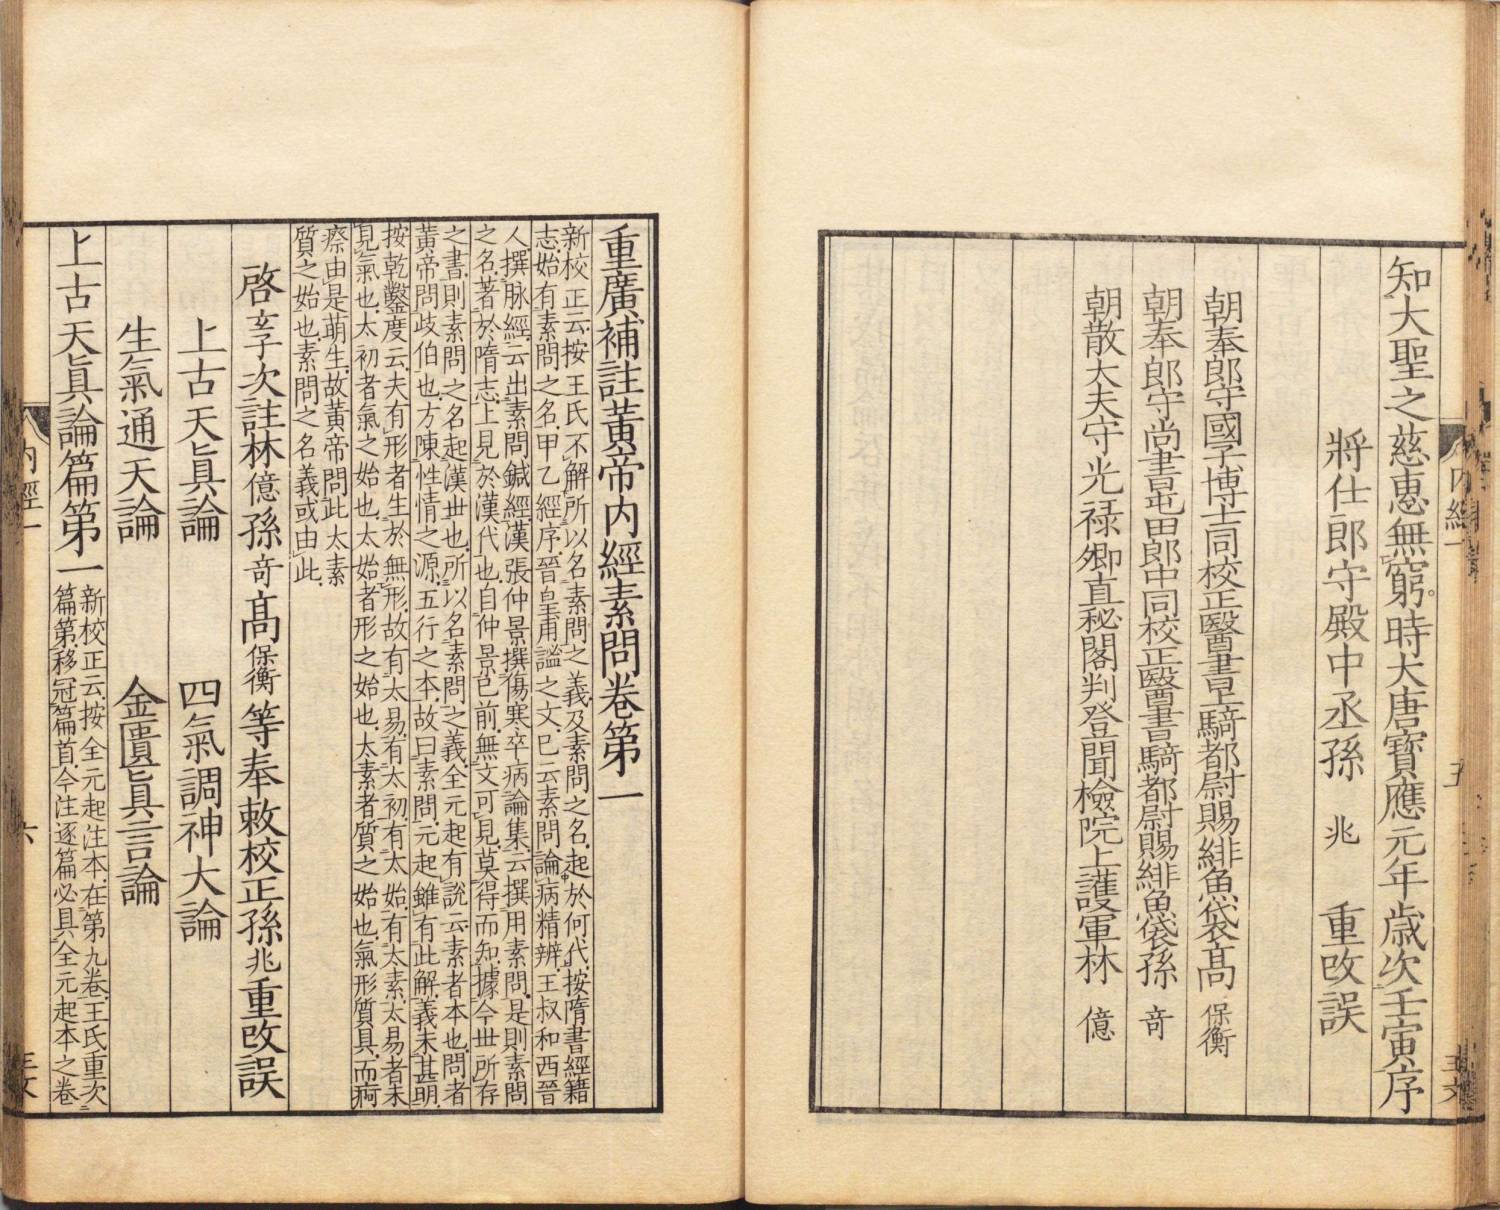 知大聖之慈惠無窮時大唐寶應元年歲次壬寅序
將仕郎守殿中丞孫 兆 重改誤
朝奉郎守國子博士同校正醫書上騎都尉賜緋魚袋高 保衡
朝奉郎守尚書屯田郎中同校正醫書騎都尉賜緋魚袋孫 奇
朝散大夫守光祿卿直秘閣判登聞檢院上護軍林 億
重廣補註黃帝內經素問卷第一
新校正云按王氏不解所以名素問之義及素問之名起於何代按隋書經籍
志始有素問之名甲乙經序晉皇甫謐之文已云素問論病精辨王叔和西晉
人撰脉經云出素問鍼經漢張仲景撰傷寒卒病論集云撰用素問是則素問
之名著於隋志上見於漢代也自仲景已前無文可見莫得而知據今丗所存
之書則素問之名起漢丗也所以名素問之義全元起有說云素者本也問者
黃帝問歧伯也方陳性情之源五行之本故曰素問元起雖有此解義未甚明
按乾鑿度云夫有形者生於無形故有太易有太初有太始有太素太易者未
見氣也太初者氣之始也太始者形之始也太素者質之始也氣形質具而痾
瘵由是萌生故黃帝問此太素
質之始也素問之名義或由此
啓玄子次註林億孫奇高保衡等奉敕校正孫兆重改誤
上古天眞論 四氣調神大論
生氣通天論 金匱眞言論
上古天眞論篇第一
新校正云按全元起注本在第九卷王氏重次
篇第移冠篇首今注逐篇必具全元起本之卷
內經一
六
內經一
五